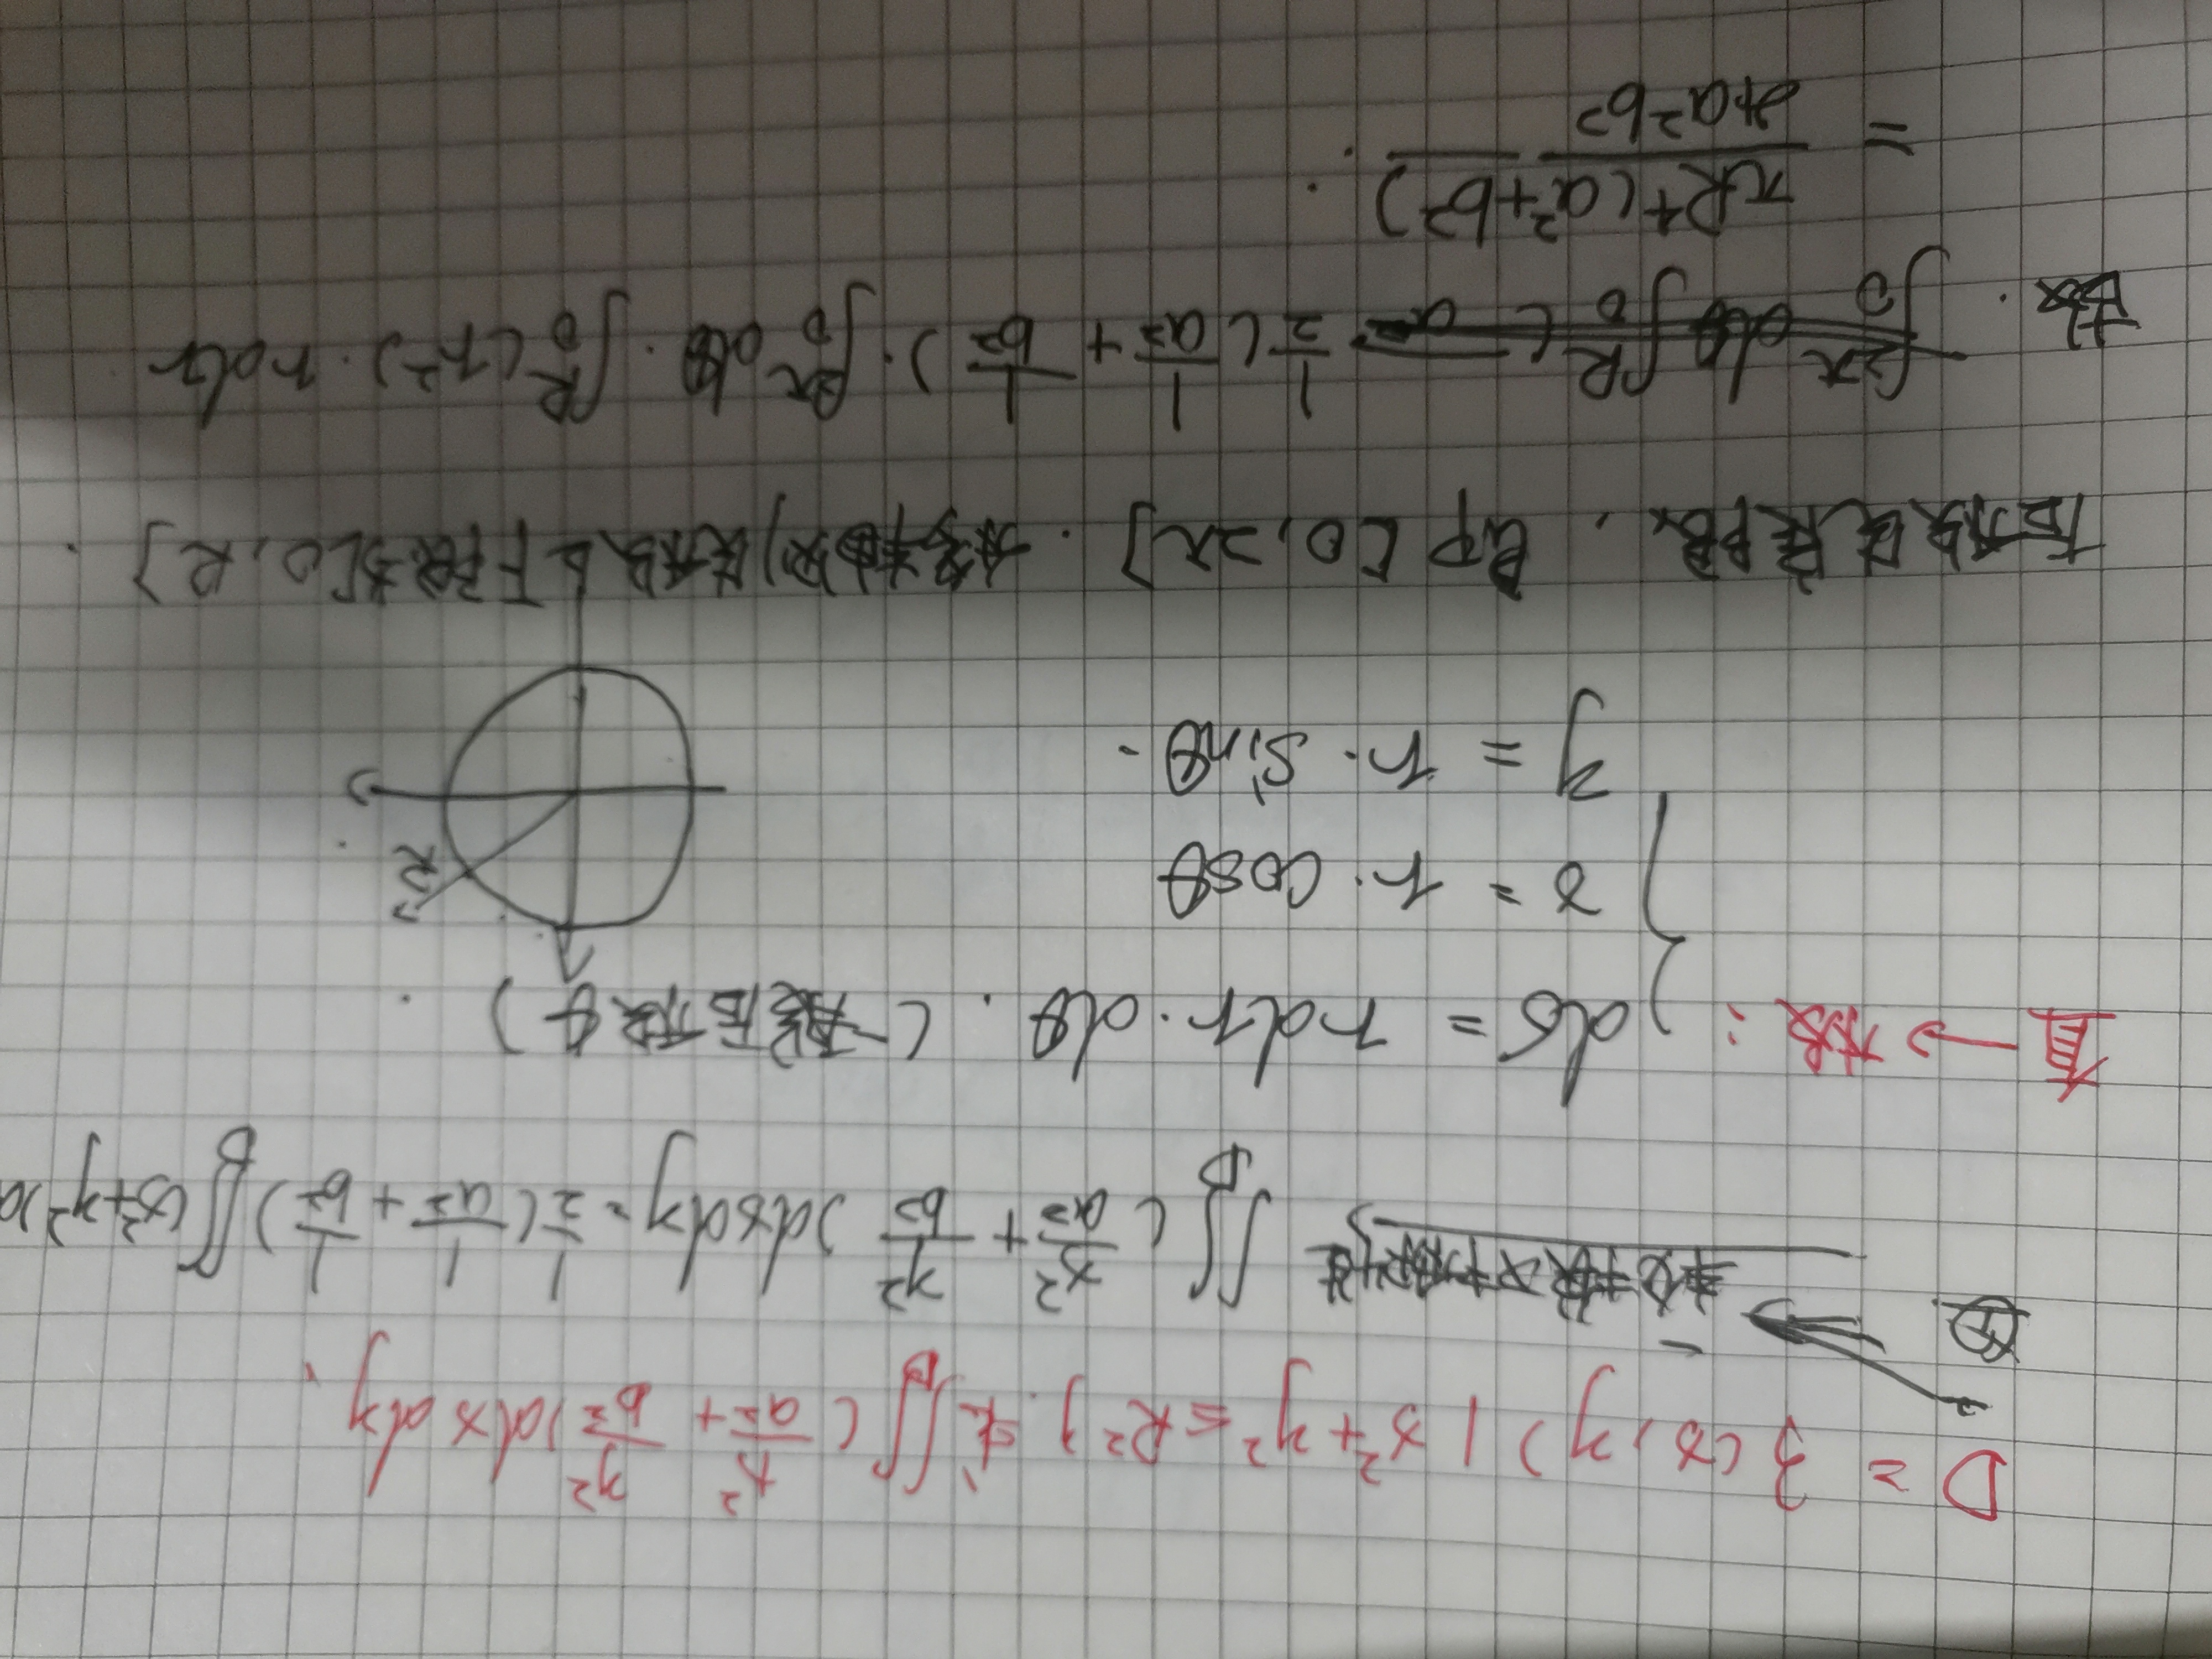 D = {(x,y) | x²+y² ≤ R²}. 求∬_D (x²/a² + y²/b²)dxdy.
∬_D (x²/a² + y²/b²)dxdy = 1/2(1/a² + 1/b²)∬_D(x²+y²)d
直→极: { dσ = rdr·dθ. (一般后积θ).
x = r·cosθ
y = r·sinθ.
R
后积先定限, 即[0,2π]. 线上下限为[0,R].
故. 1/2(1/a² + 1/b²)·∫₀^2π dθ·∫₀^R (r²)·rdr
= πR⁴(a²+b²)/4a²b².